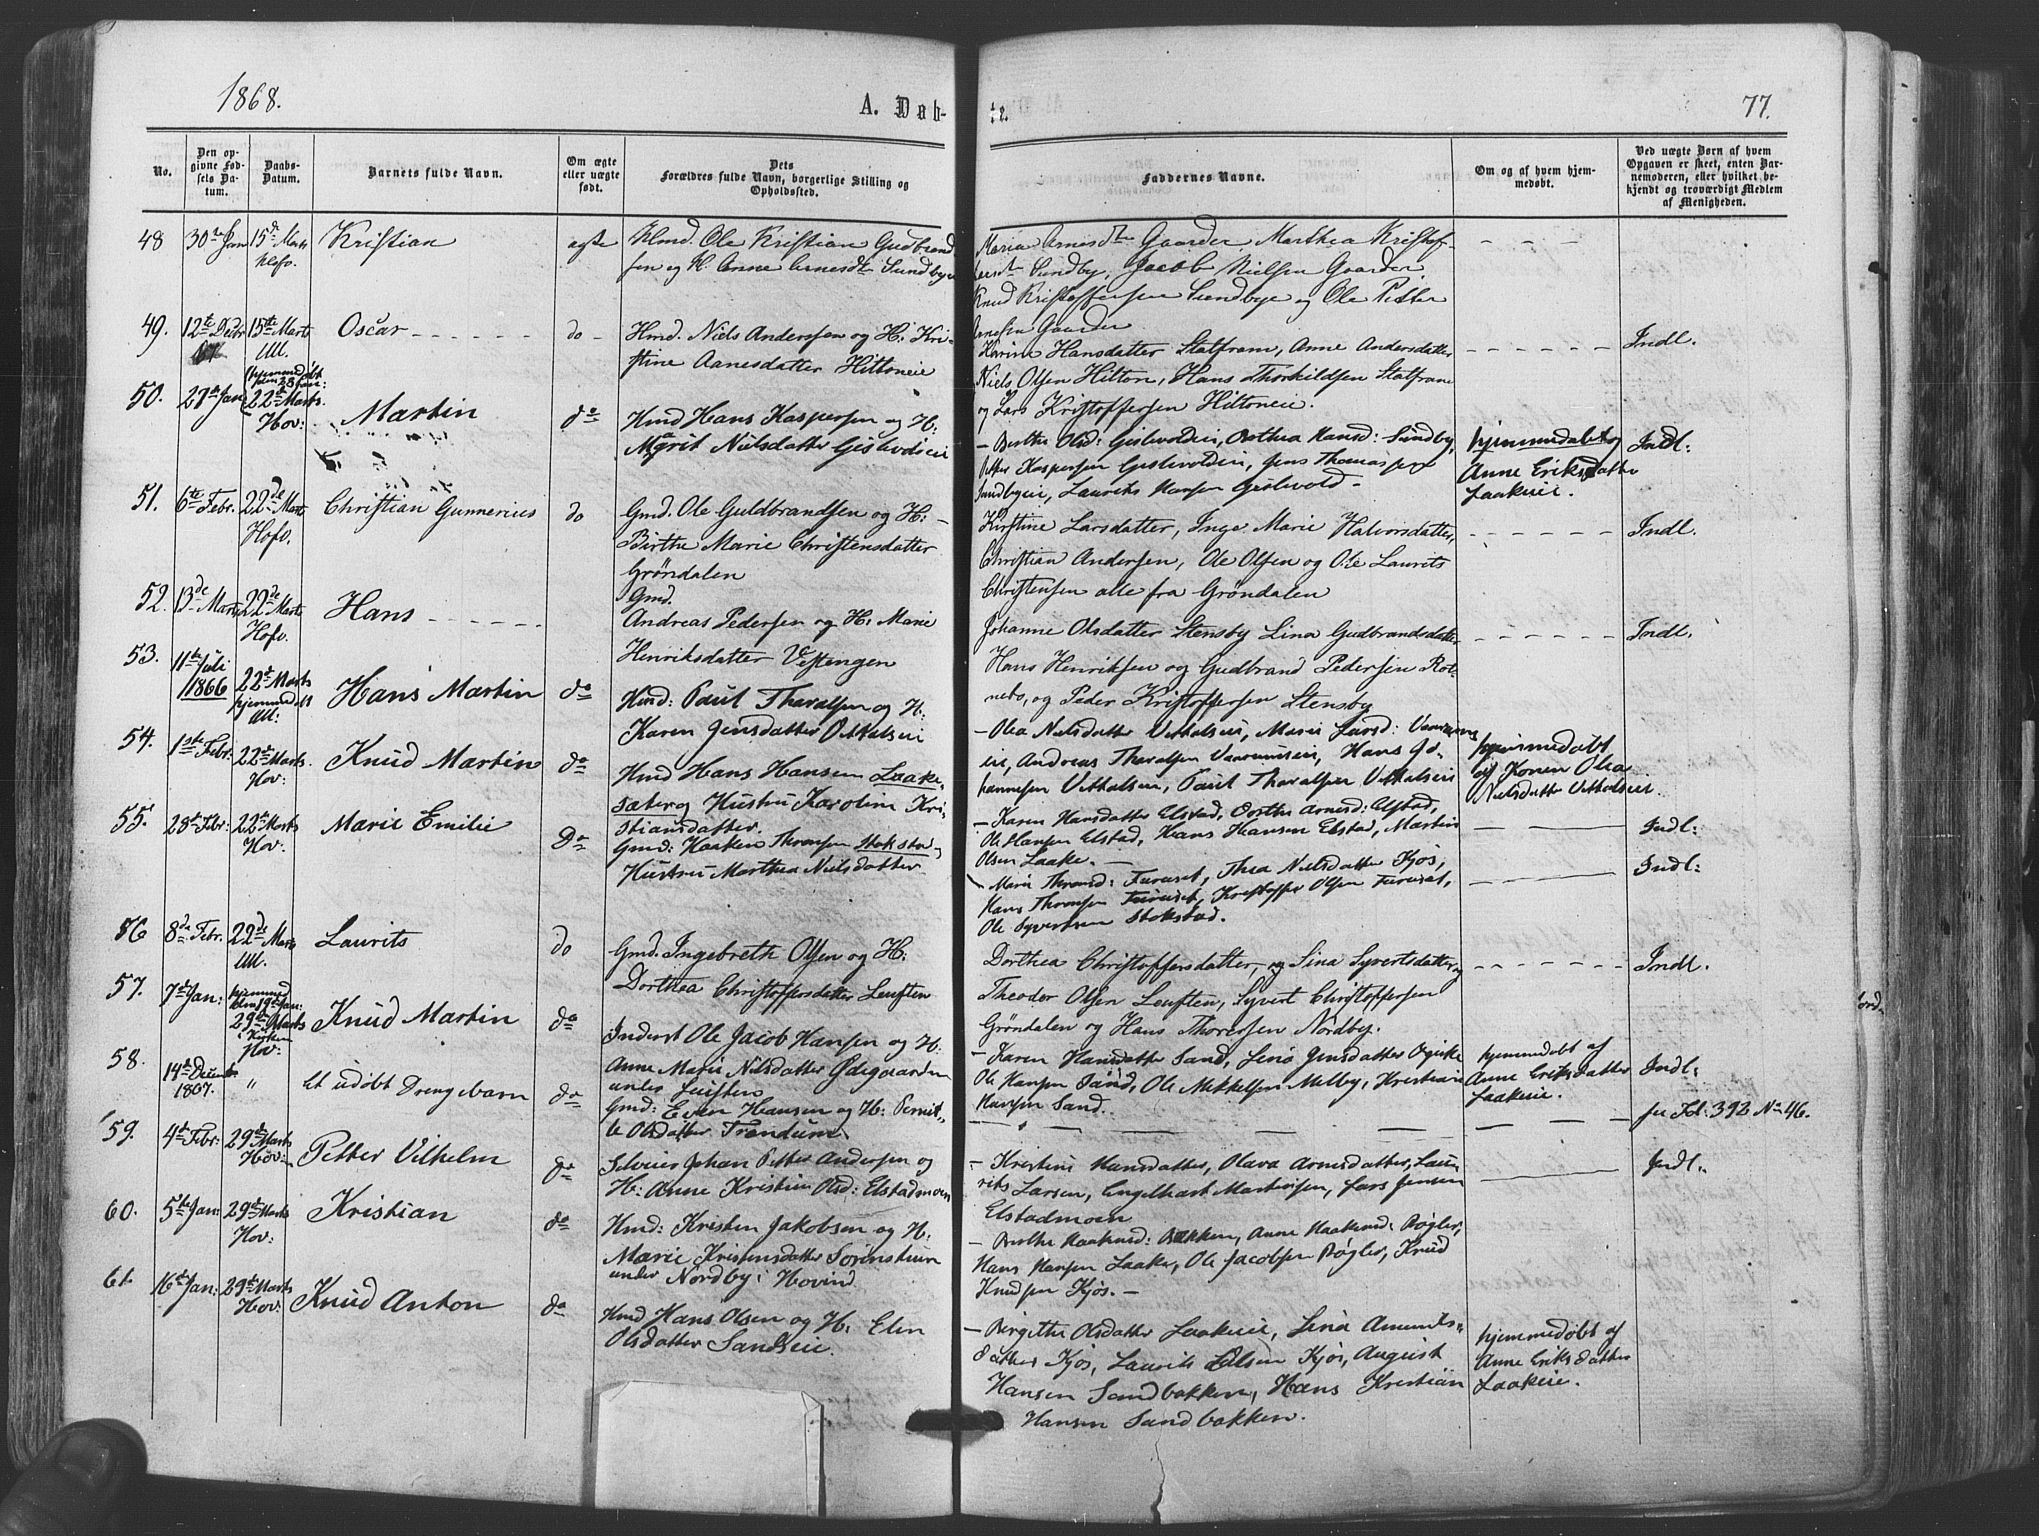 1868.
A. Døb-
te.
77.
No.
Den op-
givne Fød-
sels Da-
tum.
Daabs-
Datum.
Barnets fulde Navn.
Om ægte
eller uægte
født.
Dets
Forældres fulde Navn, borgerlige Stilling og
Opholdssted.
Faddernes Navne.
Om og af hvem hjem-
medøbt.
Ved uægte Børn af hvem
Opgaven er skeet, enten Bar-
nemoderen, eller hvilket be-
kjendt og troværdigt Medlem
af Menigheden.
48 30te Jan 15de Marts Kristian ægte Hmd. Ole Kristian Gudbrand-
Hofv.
sen og H. Anne Arnesdt Sundbye
Maria Arnesdtr Gaarder, Marthea Kristof-
fersdt Sundby, Jacob Nielsen Gaarder,
Knud Kristoffersen Sundbye og Ole Petter
Arnesen Gaarder
49. 12te Decbr 15de Marts Oscar do Hmd. Niels Andersen og H: Kri-
67 Ull.
stine Aanesdatter Hiltoneie
Karine Hansdatter Statfram, Anne Andersdatter
Niels Olsen Hilton, Hans Thorkildsen Statfram
og Lars Kristoffersen Hiltoneie.
Indl.
50. 27de Jan: (hjemmedøbt
den 28 Jan:
22de Marts.
Hov: Martin do Hmd Hans Kaspersen og H:
Margrit Nielsdatter Gislevoldseie
- Berthe Olsd: Gislevoldeie, Dorthea Hansd: Sundby,
Petter Kaspersen Gislevoldeie, Jens Thomassen
Sundbyeie, Laurits Hansen Gislevold.
hjemmedøbt af
Anne Eriksdatter
Laakeie.
Indl.
51. 6te Febr. 22de Marts Christian Gunnerius do Gmd. Ole Guldbrandsen og H:
Hofv.
Birthe Marie Christensdatter
Grøndalen
Kirstine Larsdatter, Inge Marie Halvorsdatter,
Christian Andersen, Ole Olsen og Ole Laurits
Christensen alle fra Grøndalen
Indl.
52. 13de Marts 22de Marts Hans
Hofv.
Gmd.
Andreas Pedersen og H: Marie
Henriksdatter Vestengen
Johanne Olsdatter Stensby Lina Gudbrandsdatter
Hans Henriksen og Gudbrand Pedersen Rot-
nebo, og Peder Kristoffersen Stensby
Indl.
53. 11te Juli
1866 22de Marts
hjemmedøbt
Ull: Hans Martin do Hmd: Paul Thoralsen og H:
Karen Jensdatter Vethalseie
- Olea Nielsdatter Vethalseie, Marie Larsd:
eie, Andreas Thoralsen, Hans Jo-
hannesen Vethalseie, Paul Thoralsen Vethalseie
hjemmedøbt
af Konen Olea
Nielsdatter Vethalseie.
54. 1ste Febr: 22de Marts.
Hov: Knud Martin do Hmd Hans Hansen Laake-
sæter og Hustru Karoline Kri-
stiansdatter.
- Karen Hansdatter Elstad, Dorthe Arnesd: Elstad,
Ole Hansen Elstad, Hans Hansen Elstad, Martin
Olsen Laake.
Indl:
55. 28de Febr: 22de Marts
Hov: Marie Emilie Do Gmd: Haaken Thronsen Stokstad og
Hustru Marthea Nielsdatter
- Marie Thronsd: Furuset, Thea Nielsdatter Kjos,
Hans Thronsen Furuset, Kristoffer Olsen Furuset,
Ole Syvertsen Stokstad.
Indl:
56 8de Febr. 22de Marts
Ull. Laurits do Gmd. Ingebreth Olsen og H:
Dorthea Christoffersdatter Leuften
Dorthea Christoffersdatter, og Lina Syvertsdatter,
Theodor Olsen Leuften, Syvert Christoffersen
Grøndalen og Hans Thoresen Nordby.
Indl.
57. 7de Jan: hjemmed
den 19de Jan:
29de Marts
i Kirken
Hov: Knud Martin do Inderst Ole Jacob Hansen og H:
Anne Marie Nielsdatter Ødegaarden
under Leuften
- Karen Hansdatter Sand, Lina Jensdatter
Ole Hansen Sand, Ole Mikkelsen Melby, Kristian
Hansen Sand.
hjemmedøbt af
Anne Eriksdatter
Laakeie.
Indl:
58. 14de Decembr
1867. " Et udøbt Drengebarn do Gmd: Even Hansen og H: Pernil-
le Olsdatter Trondum
se Fol: 392 No 46.
59. 4de Febr: 29de Marts
Hov: Petter Vilhelm do Selveier Johan Petter Andersen og
H: Anne Kristine Olsd: Elstadmoen
- Kristine Hansdatter, Olava Arnesdatter, Lau-
rits Larsen, Engelhart Martinsen, Lars Jensen
Elstadmoen
Indl:
60. 5te Jan: 29de Marts
Hov: Kristian do Hmd: Kristen Jakobsen og H:
Marie Kristensdatter Sørenstuen
under Nordby i Hovind
- Berthe Haakensd: Bakken, Anne Haakensd: Røgler,
Hans Hansen Laake, Ole Jacobsen Røgler, Knud
Knudsen Kjos.
61. 16de Jan: 29de Marts
Hov: Knud Anton do Hmd Hans Olsen og H: Elen
Olsdatter Sandseie.
- Birgithe Olsdatter Laakeie, Lina Amunds-
datter Kjos, Laurits Olsen Kjos, August
Hansen Sandbakken, Hans Kristian
Hansen Sandbakken.
hjemmedøbt af
Anne Eriksdatter
Laakeie.